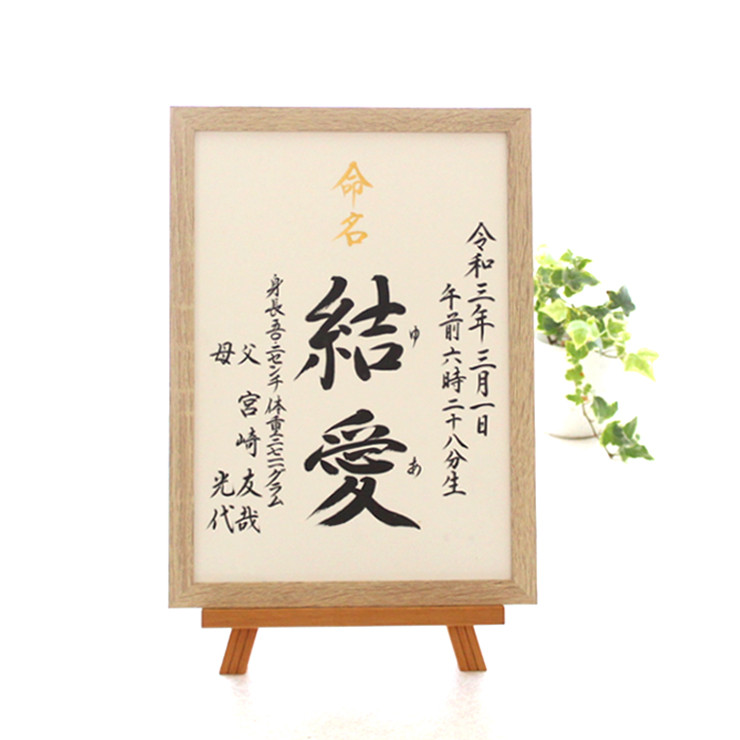 命名
令和三年三月一日
午前六時二十八分生
結愛
ゆあ
身長五二センチ体重二七二一グラム
父宮崎友哉
母光代